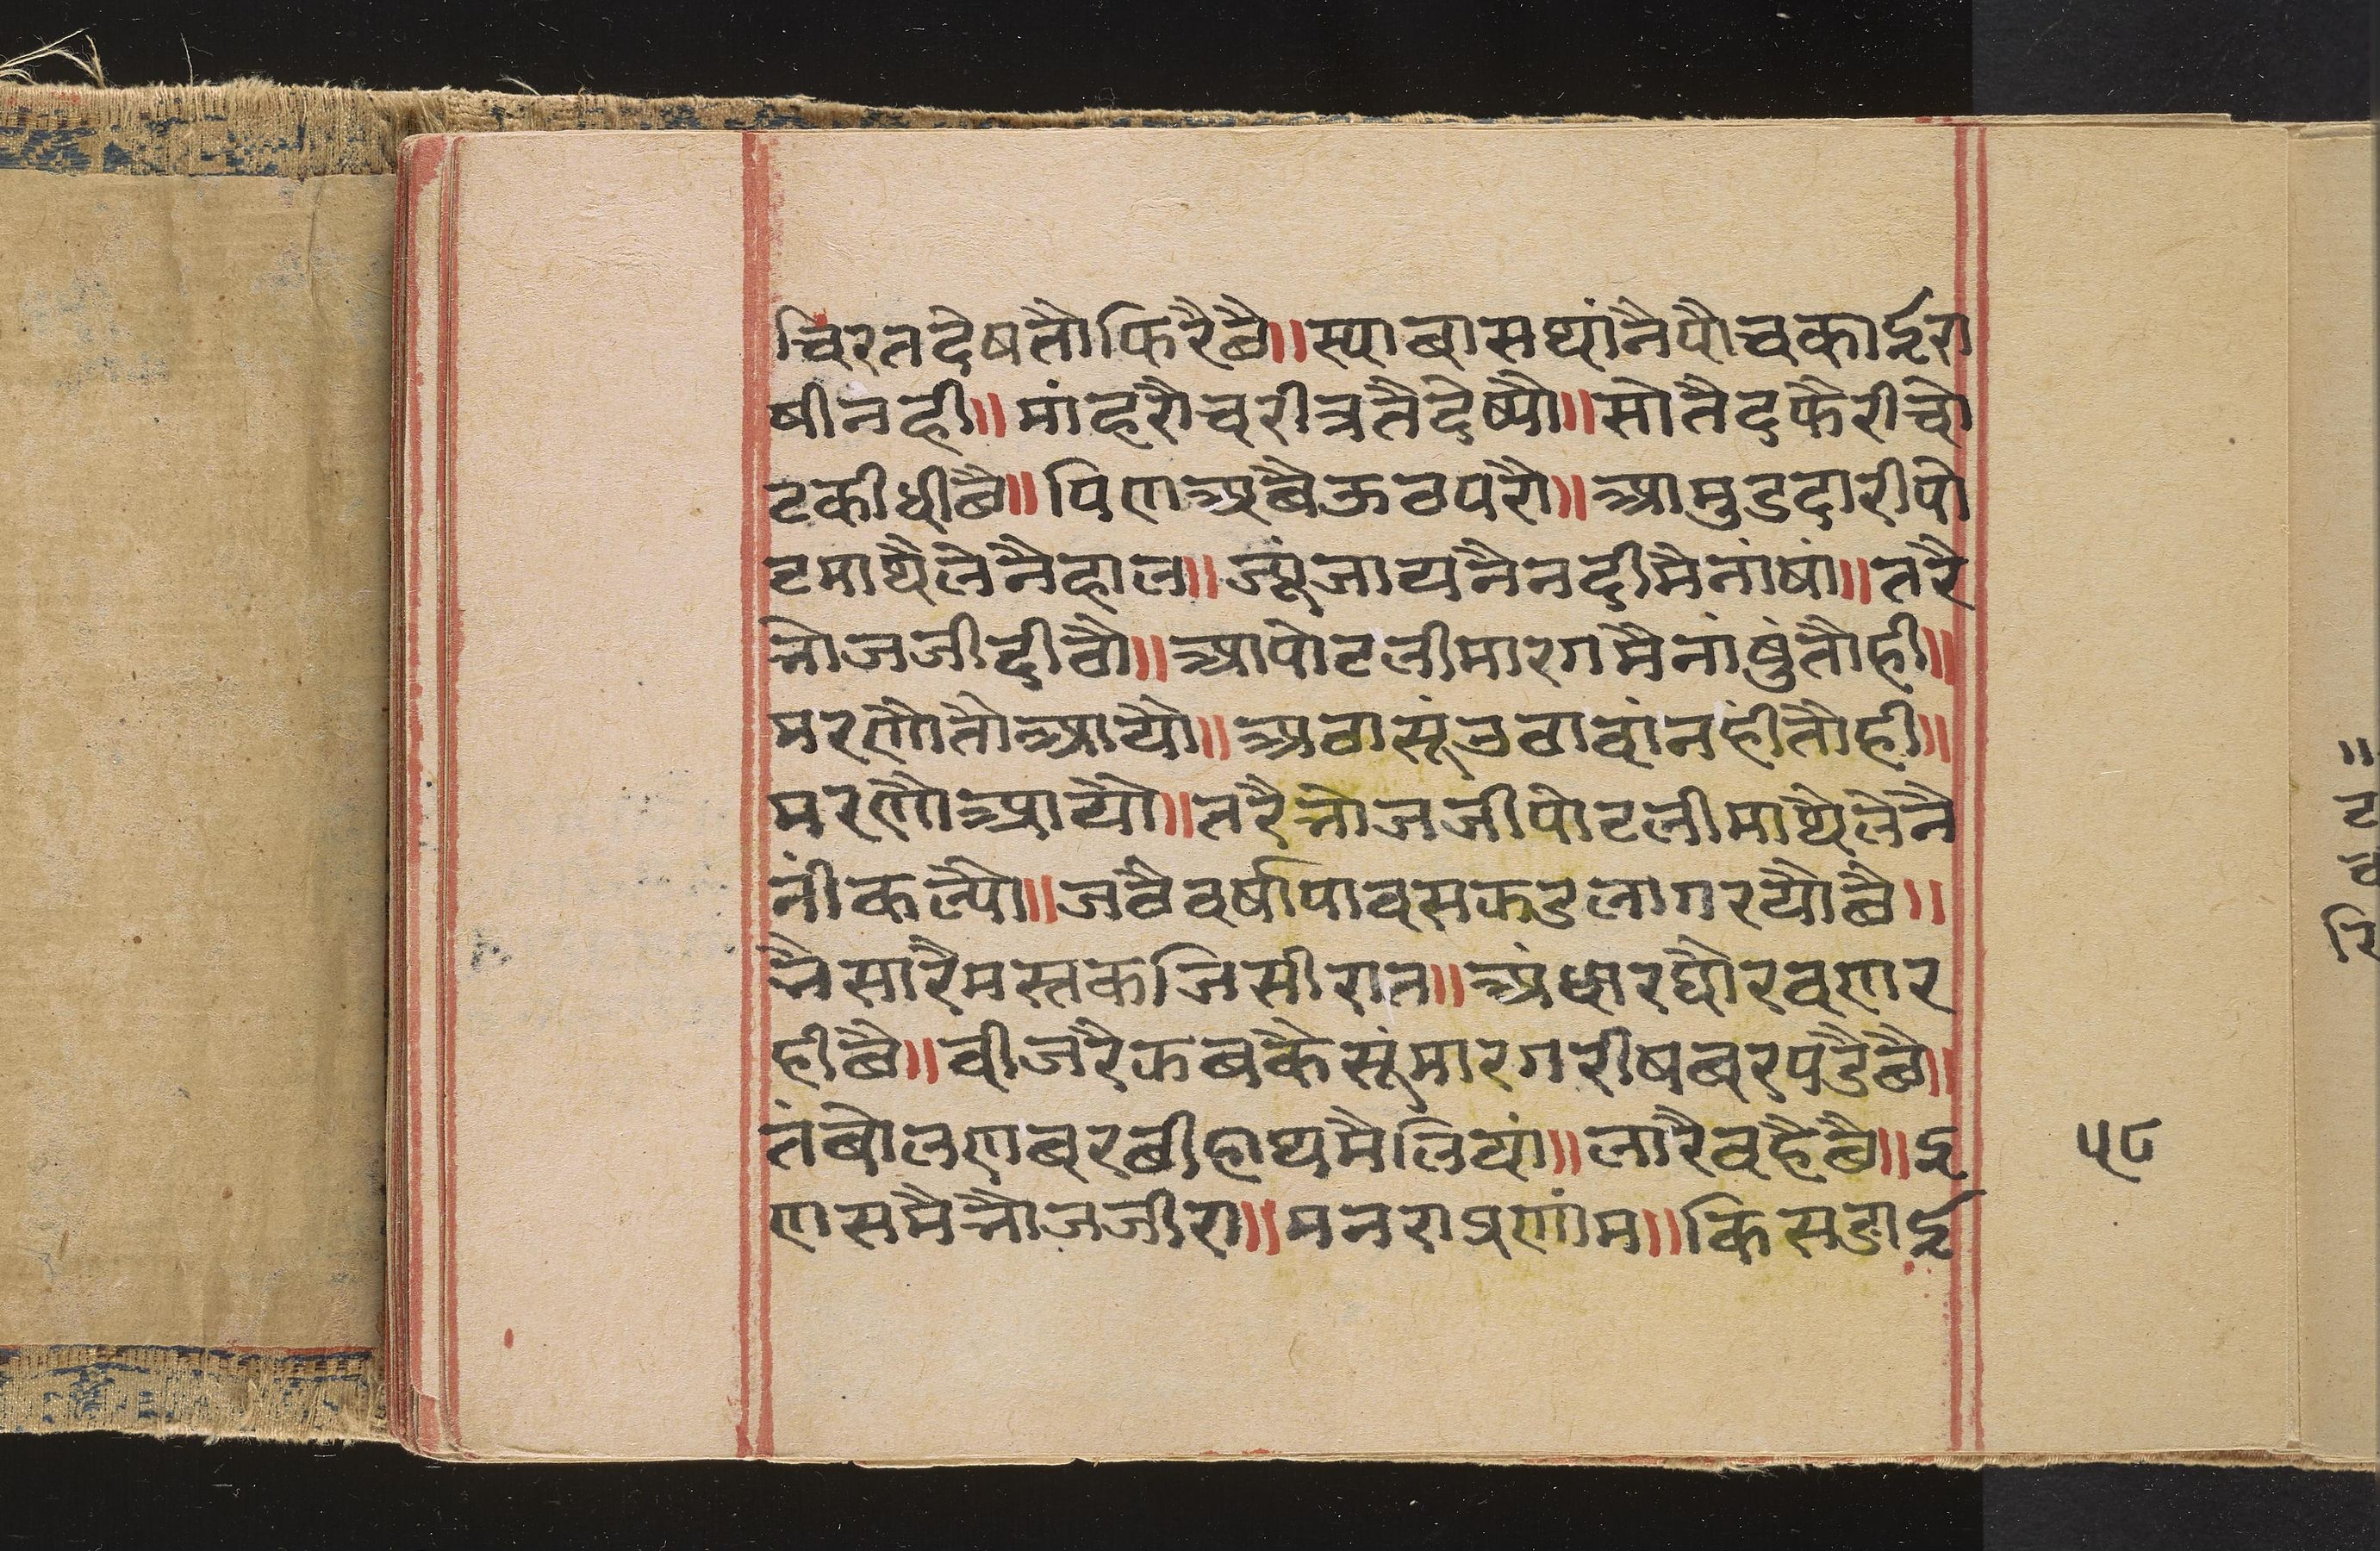 चिरतदेषतौफिरैछै॥स्याबासथांनैपौचकाईरा
षीनही॥मांहरौचरीत्रतैदेष्यौ॥सोतैदफैरीचो
टकीधीछै॥पिणअबैऊठपरौ॥आमुडदारीपो
टमाथैलेनैहाल॥ज्यूंजायनैनदीमैनांषां॥तरै
नोजजीदीठौ॥आपोटलीमारगमैनांषुंतौही॥
मरणौतोआयौ॥अठासूंउठावांनहीतौही॥
मरणौआयौ॥तरैनोजजीपोटलीमाथैलेनै
नीकल्यौ॥जठैवर्षापावसकडलागरयौछै॥
नैसारैमस्तकजिसीरात॥अंधारघौरवणर
हीछै॥वीजरैकबकैसूंमारगरीषबरपडैछै॥
तंबोलणबरबीहाथमैलियां॥लारैवहैछै॥इ
णसमैनौजजीरा॥मनराप्रणांम॥किसडाई
५८